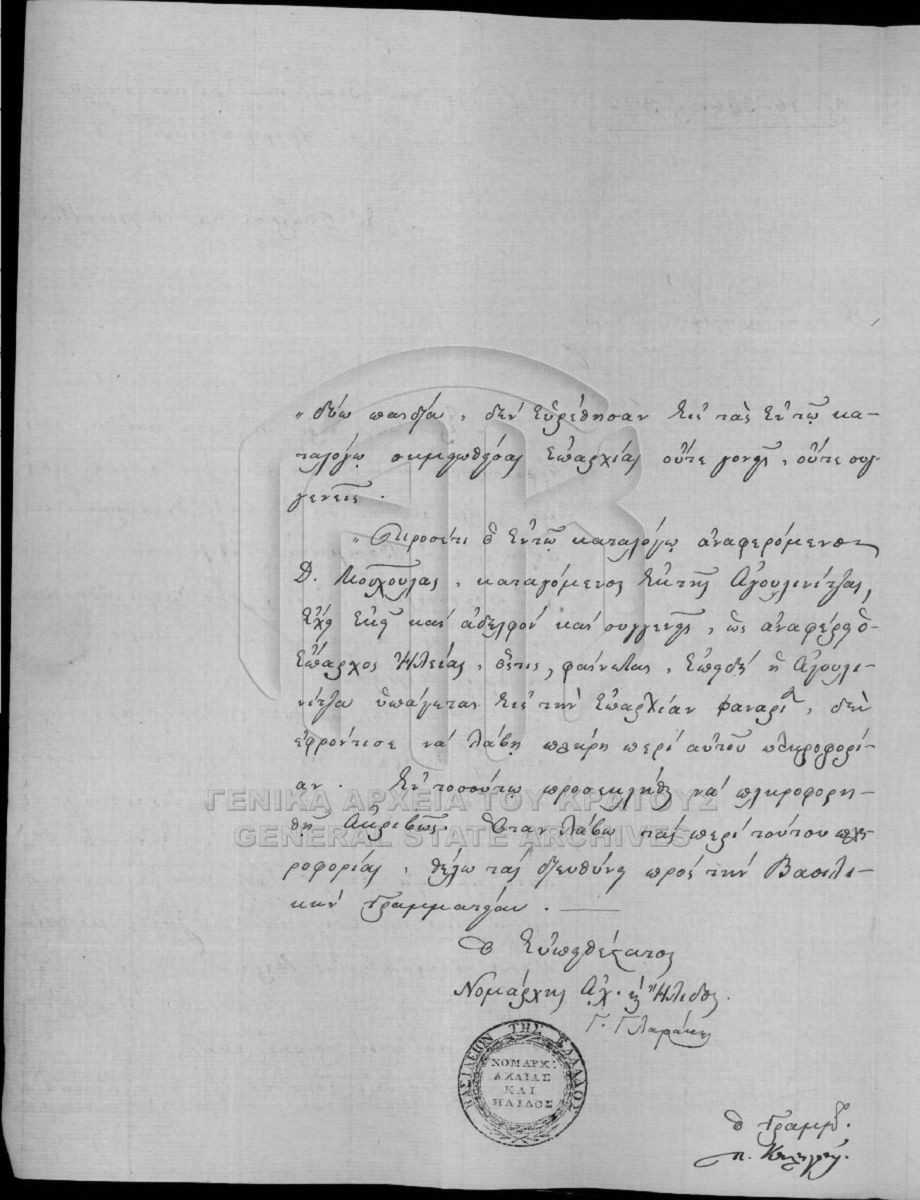 „ δύω παιδία, δέν εὑρέθησαν εἰς τὰς ἐν τῷ κα-
ταλόγῳ σημειωθείσας ἐπαρχίας οὔτε γονεῖς, οὔτε συγ-
γενεῖς.
„ Προσέτι ὁ ἐν τῷ καταλόγῳ ἀναφερόμενος
Δ. Μούχουλας, καταγόμενος ἐκ τῆς Ἀγουλινίτζας,
ἔχει ἐκεῖ καί ἀδελφόν καί συγγενεῖς, ὡς ἀναφέρει ὁ
Ἔπαρχος Ἠλείας, ὅςτις, φαίνεται, ἐπειδή ἡ Ἀγουλι-
νίτζα ὑπάγεται εἰς τὴν ἐπαρχίαν Φαναρίου, δέν
ἐφρόντισε νά λάβῃ πλήρη περί αὐτοῦ πληροφορί-
αν. Ἐν τοσούτῳ προσεκλήθη νά πληροφορη-
θῇ ἀκριβῶς. Ὅταν λάβω τάς περί τούτου πλη-
ροφορίας, θέλω τάς διευθύνει πρός τήν Βασιλι-
κήν Γραμματείαν.
Ὁ Εὐπειθέστατος
Νομάρχης Ἀχ. καὶ Ἤλιδος.
Γ. Γλαράκης
ΒΑΣΙΛΕΙΟΝ ΤΗΣ ΕΛΛΑΔΟΣ
ΝΟΜΑΡΧ:
ΑΧΑΙΑΣ
ΚΑΙ
ΗΛΙΔΟΣ
Ὁ Γραμμ.
Π.
ΓΕΝΙΚΑ ΑΡΧΕΙΑ ΤΟΥ ΚΡΑΤΟΥΣ
GENERAL STATE ARCHIVES